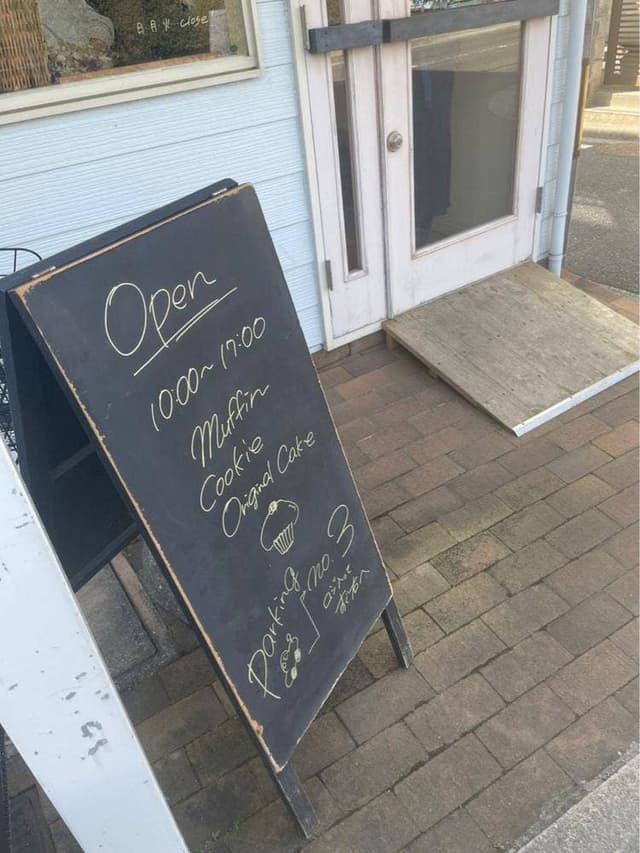 日月火 close
Open
10:00～17:00
Muffin
Cookie
Original Cake
Parking
no.3